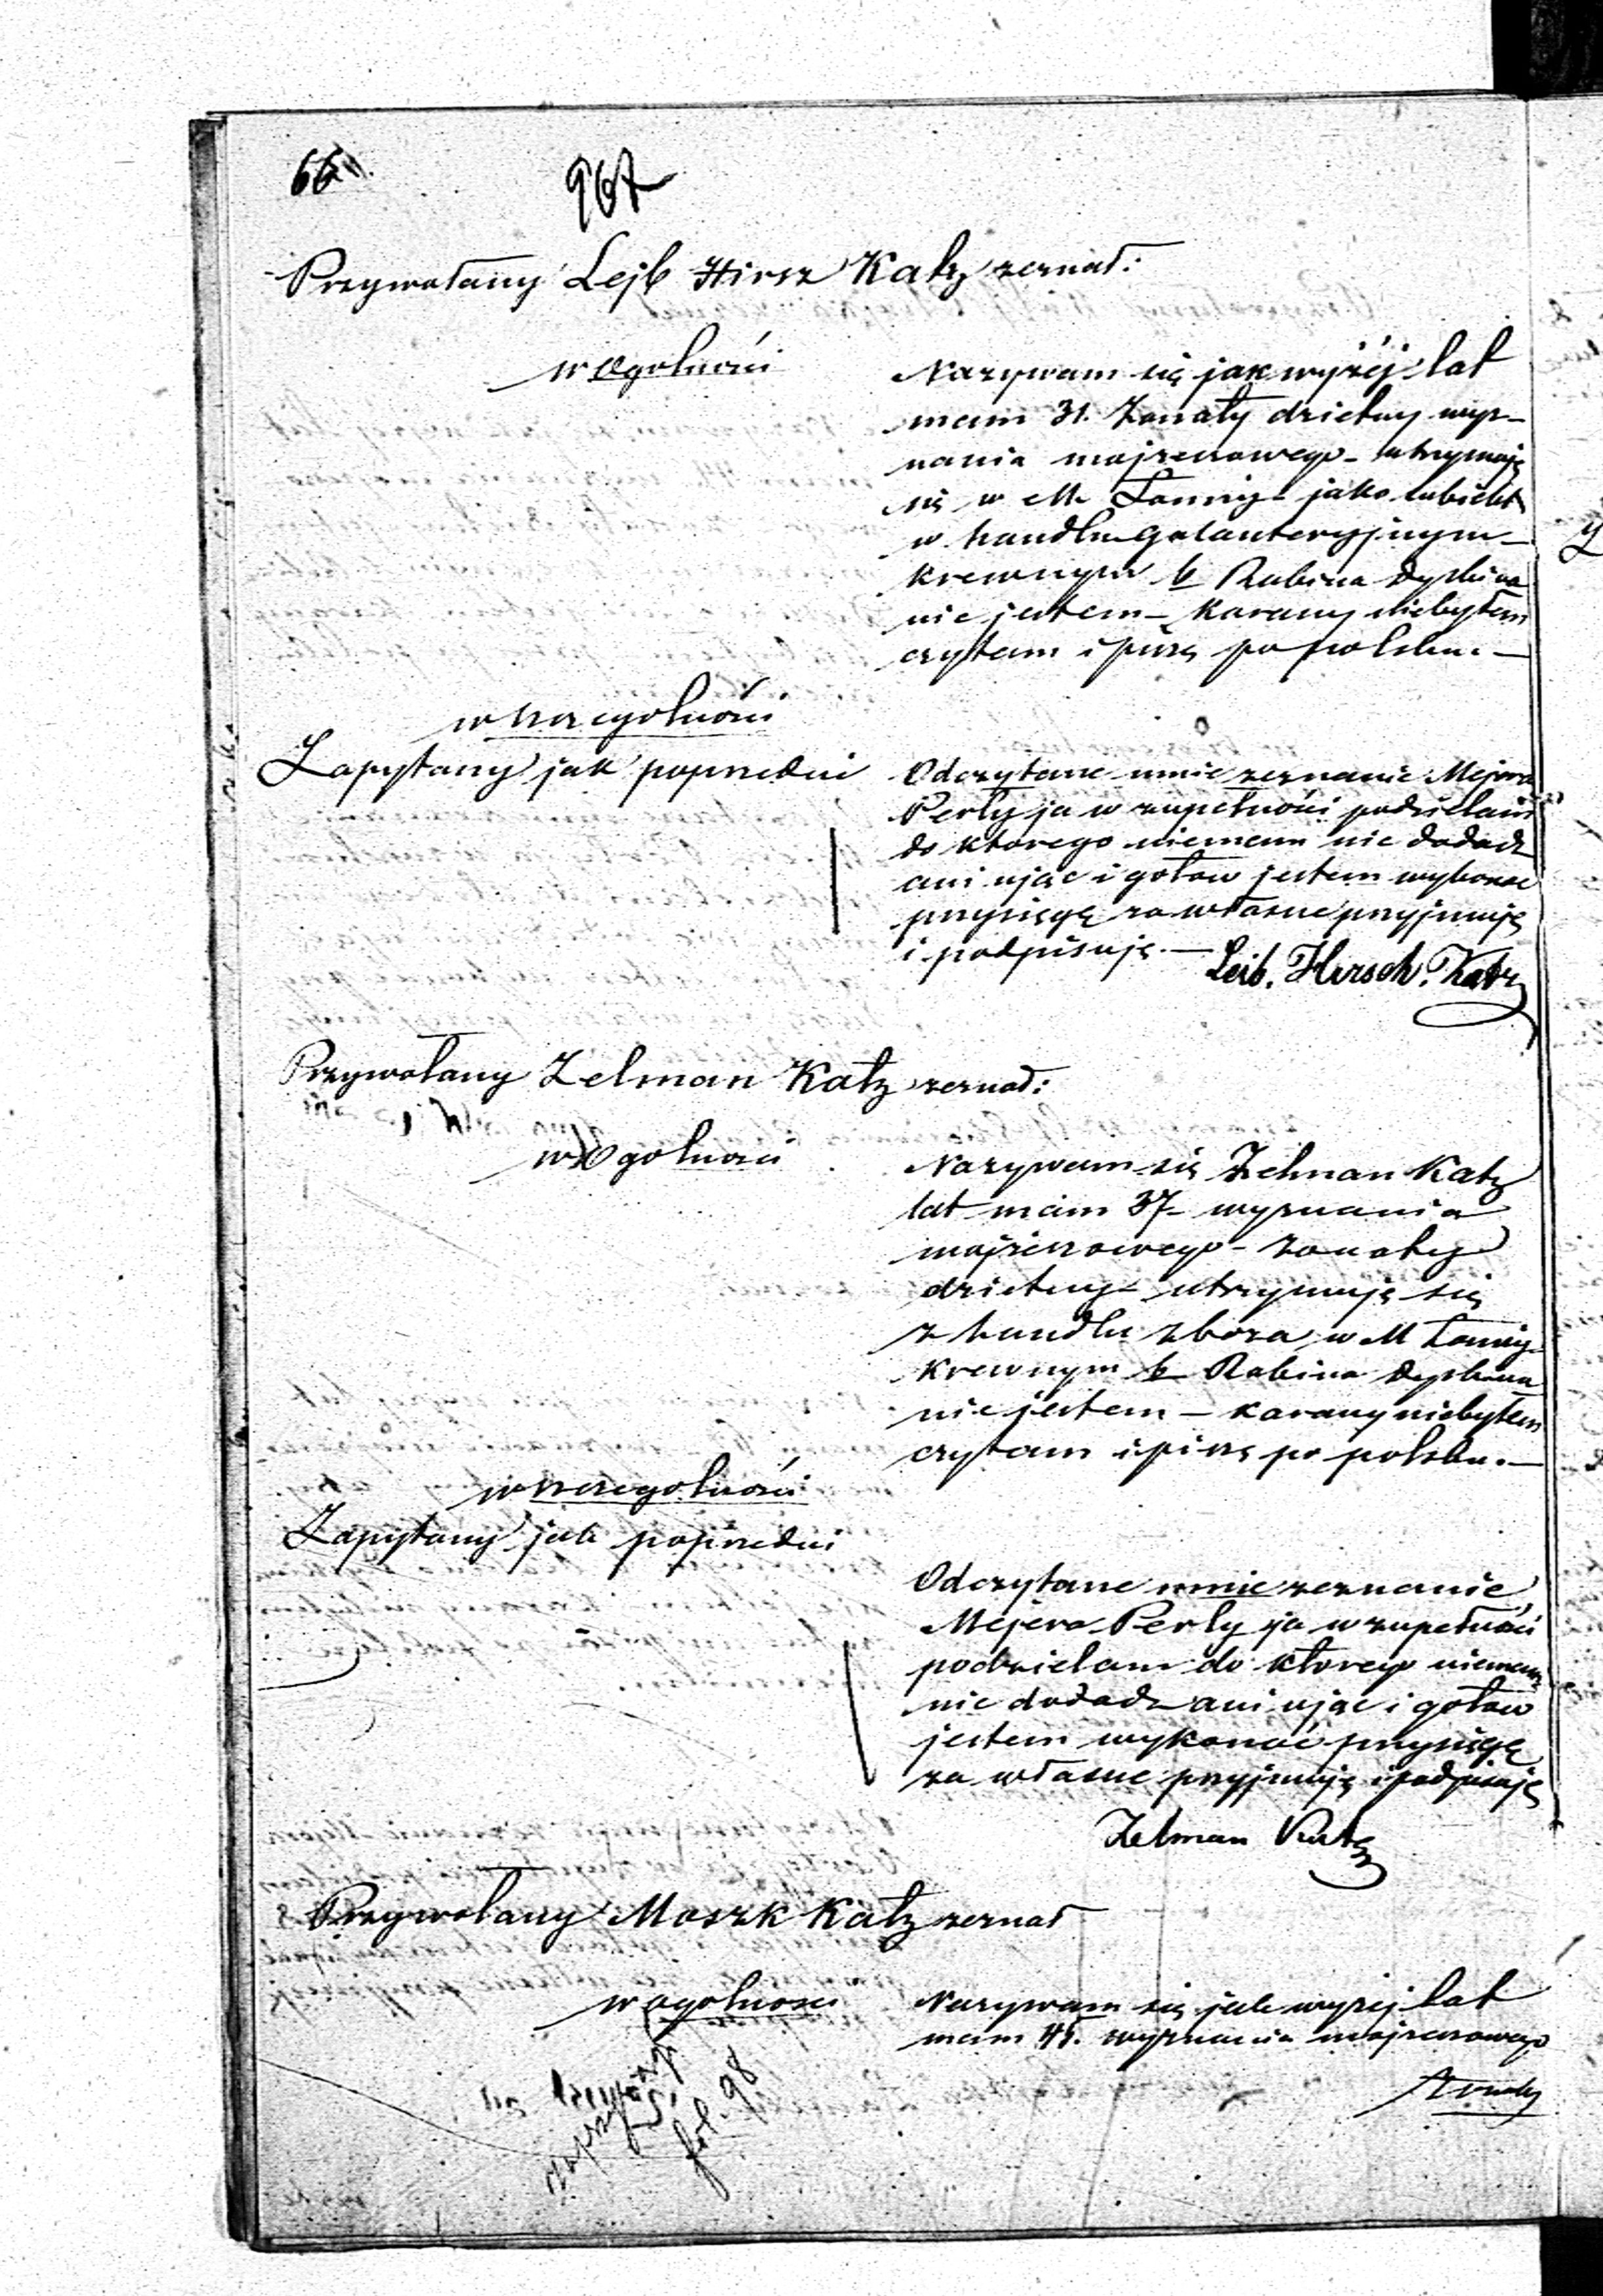 66
967
Przywołany Lejb Hirsz Katz zeznał:
w Ogolności
Nazywam się jak wyżéj lat
mam 31. Żonaty dzietny wyz-
nania mojżeszowego - utrzymuję
się w M. Łomży - jako subiekt
w handlu galanteryjnym -
krewnym b Rabina Dyskina
nie jestem - karany niebyłem
czytam i piszę po polsku. -
w szczególności
Zapytany jak poprzedni
Odczytane mnie zeznanie Mejera
Perły ja w zupełności podzielam
do ktorego niemam nic dodadz
ani ująć i gotow jestem wykonać
przysięgę za własne przyjmuję
i podpisuję. -
Leib. Hirsch. Katz
Przywołany Zelman Katz zeznał:
w Ogolnosci
Nazywam się Zelman Katz
lat mam 37 - wyznania
mojżeszowego - żonaty
dzietny - utrzymuję się
z handlu zboża w M Łomży -
krewnym b Rabina Dyskina
nie jestem - karany niebyłem
czytam i piszę po polsku. -
w szczególności
Zapytany jak poprzedni
Odczytane mnie zeznanie
Mejera Perły ja w zupełności
podzielam do ktorego niemam
nic dodadz ani ująć i gotow
jestem wykonać przysięgę
za własne przyjmuję i podpisuję
Zelman Katz
Przywołany Moszk Katz zeznał
w ogolnosci
Nazywam się jak wyżej lat
mam 45. wyznania mojżeszowego
żonaty
fol. 98